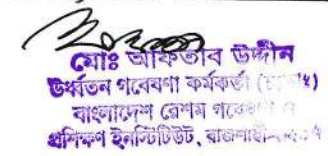 মোঃ আফতাব উদ্দীন
উর্ধ্বতন গবেষণা কর্মকর্তা
বাংলাদেশ রেশম গবেষণা ও
প্রশিক্ষণ ইনস্টিটিউট, রাজশাহী-